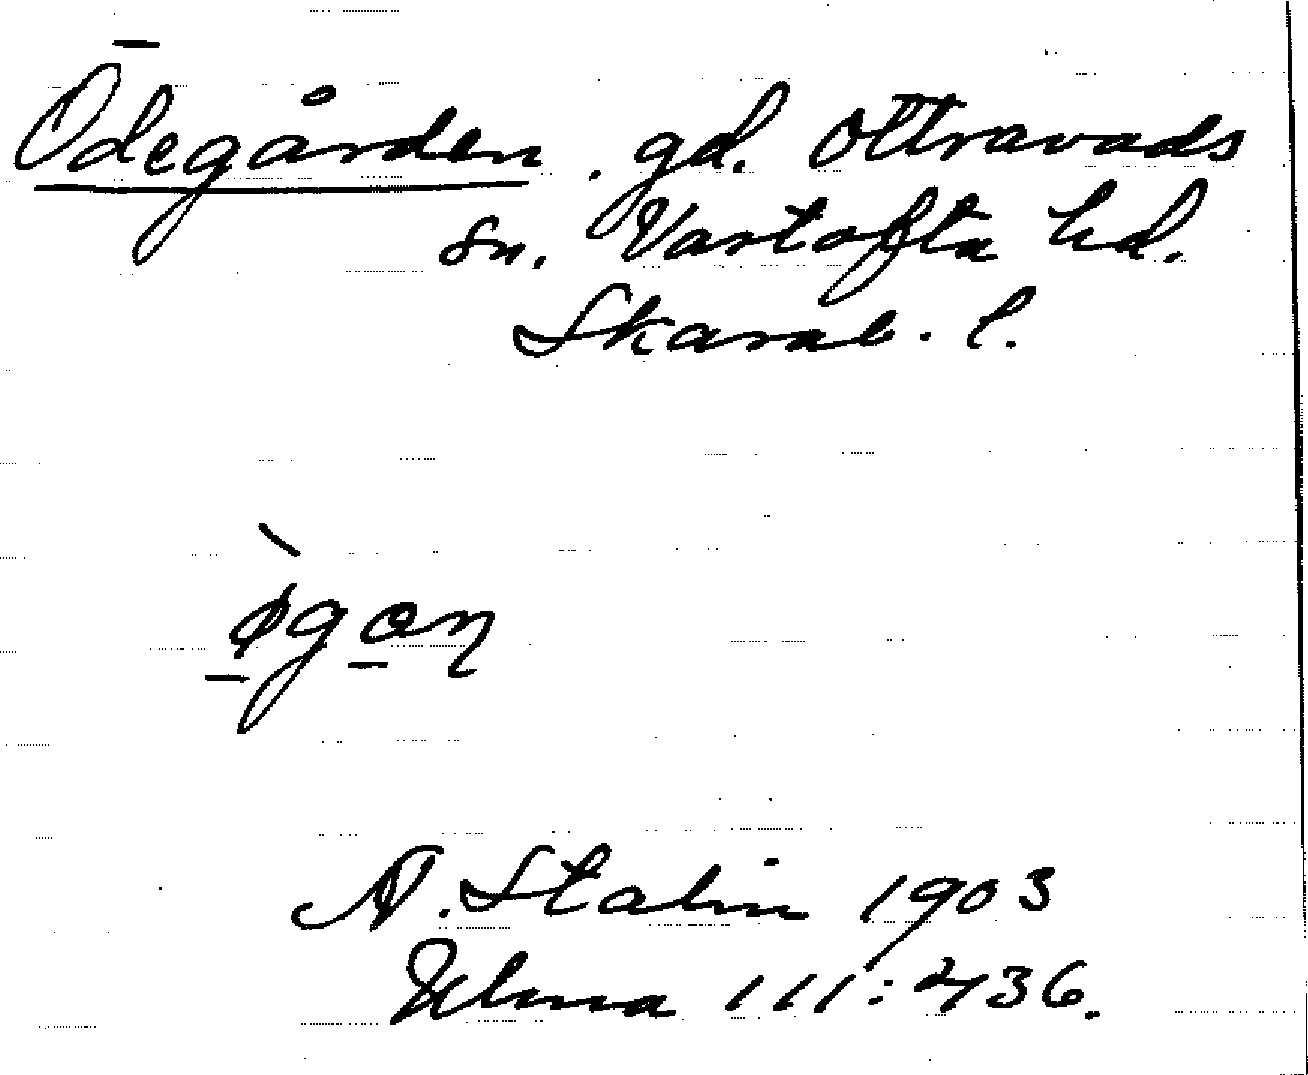 Ödegården. gd. Ottravads
sn. Vartofta hd.
Skarab. l.
ø̀gan
A. Stalin 1903
Ulma 111:436.